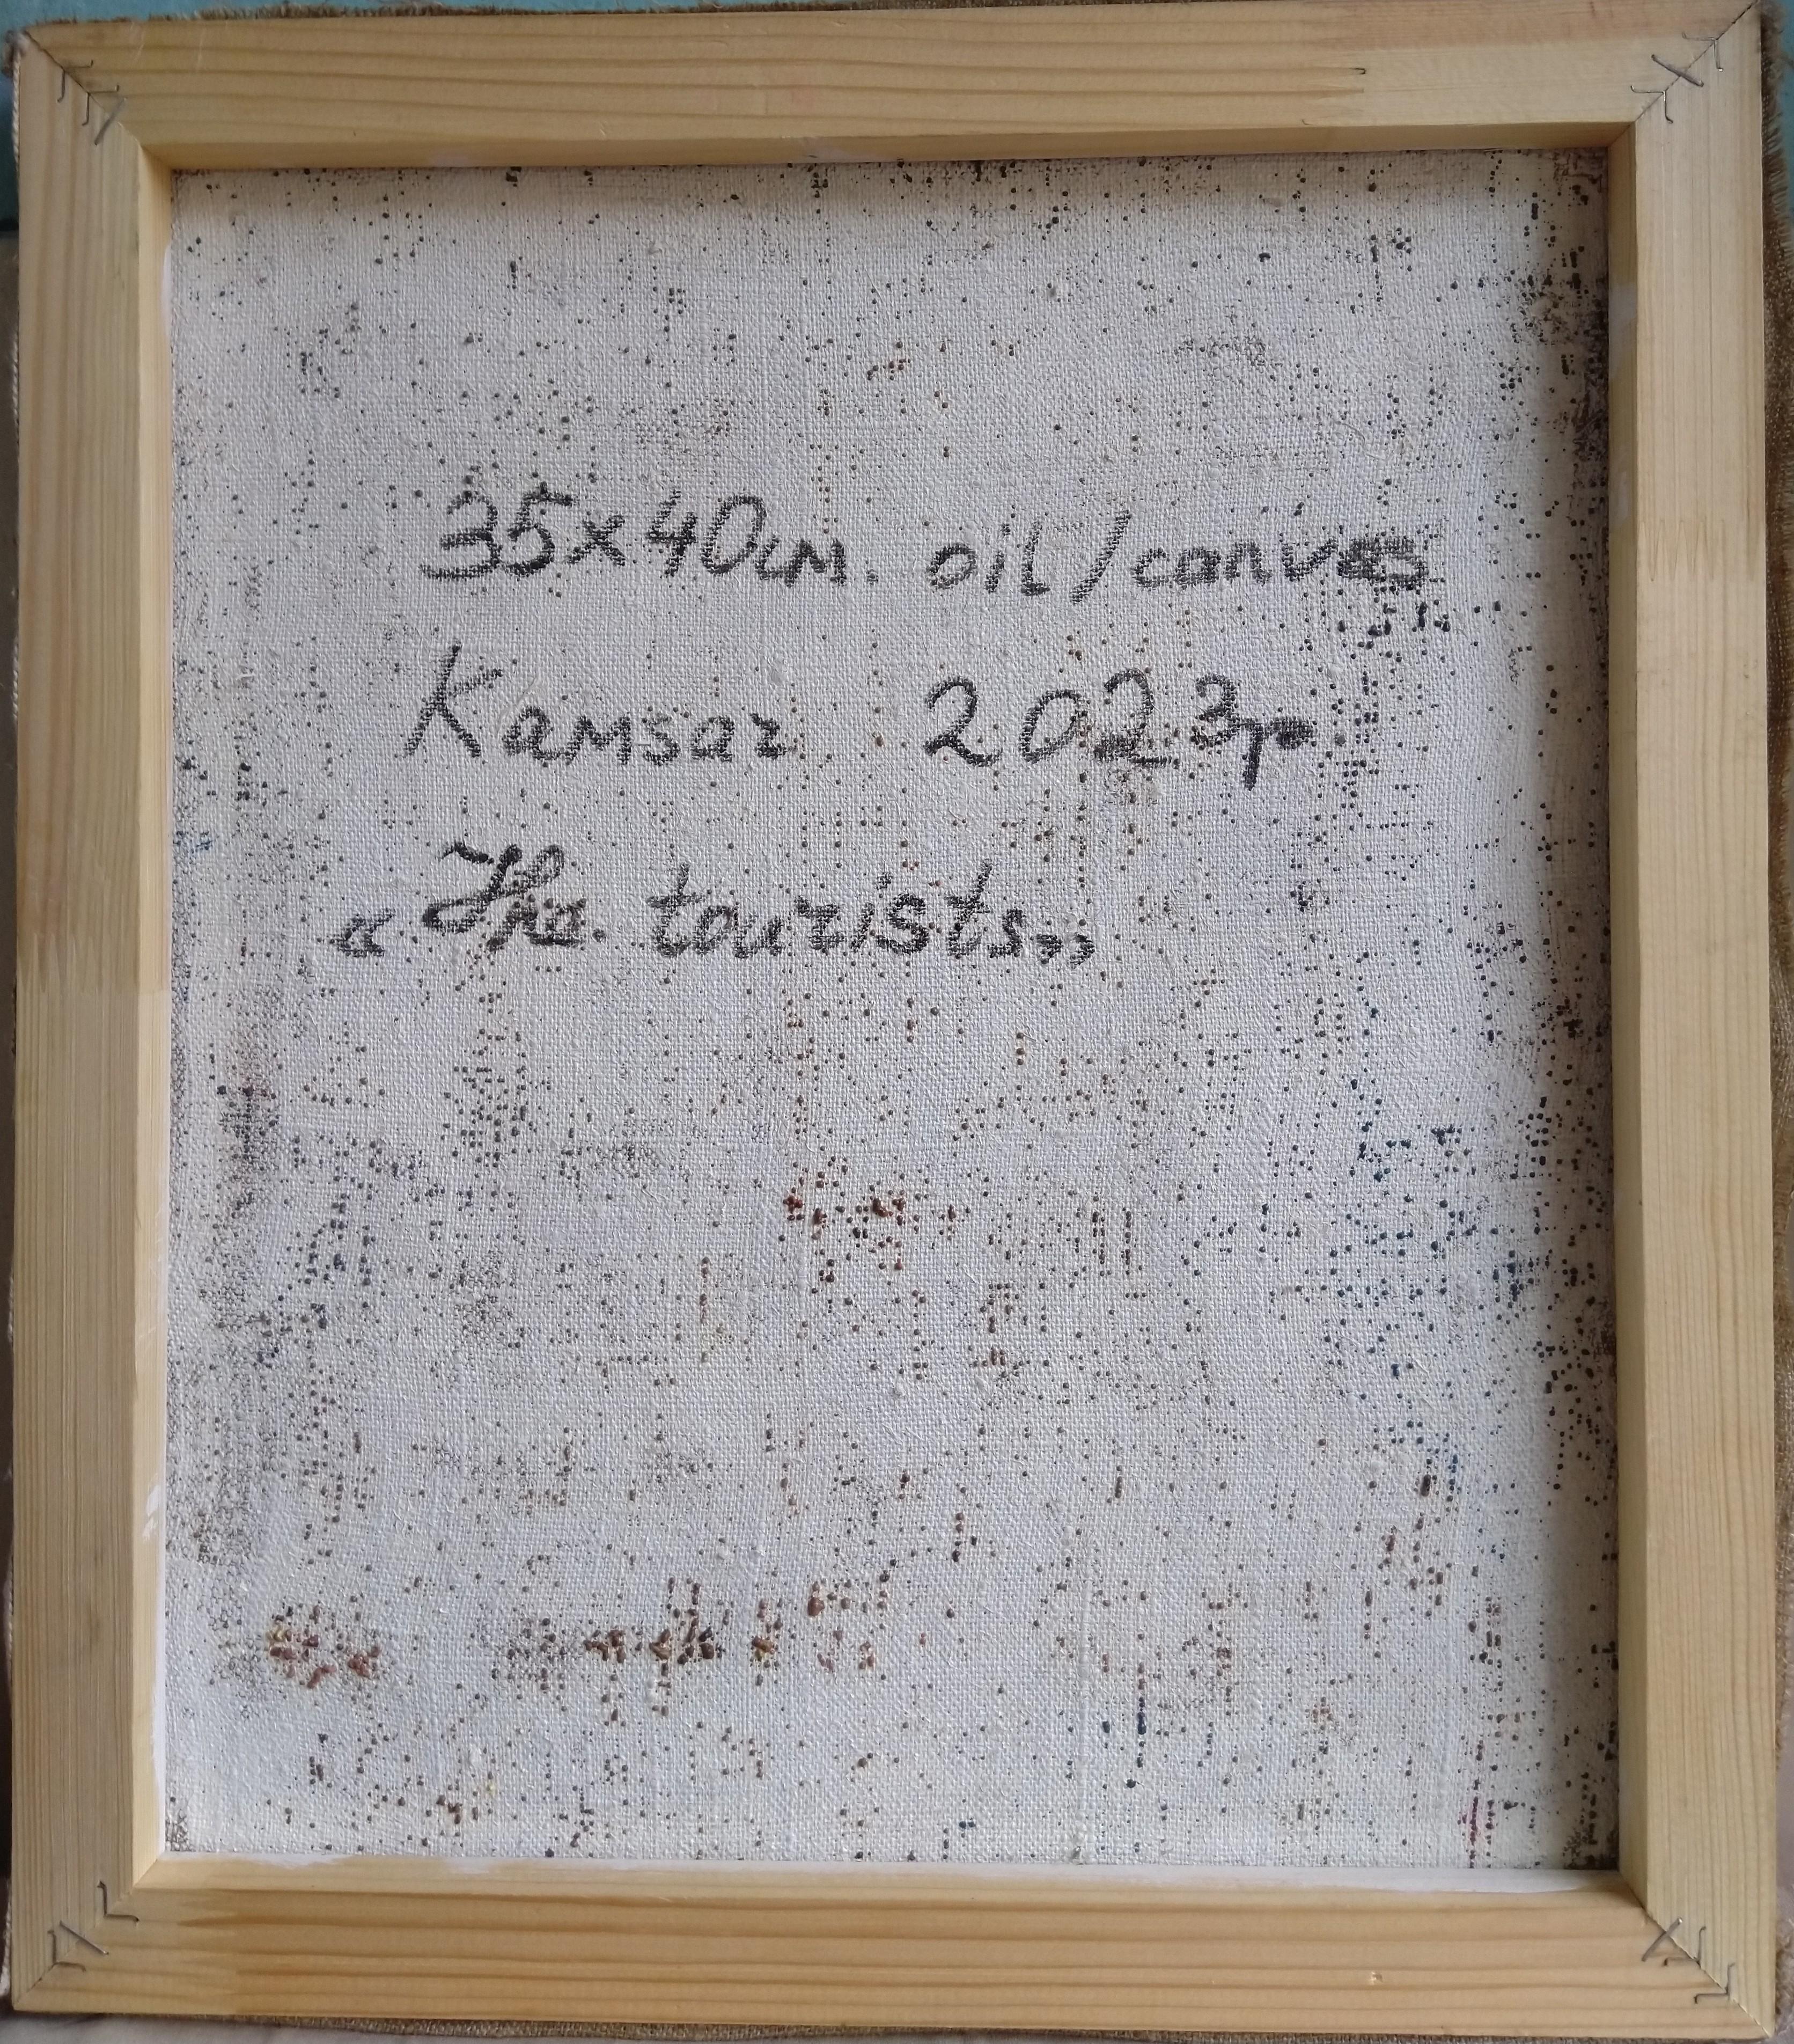 35x40см. oil/canvas
Kamsar 2023р.
"The. tourists"